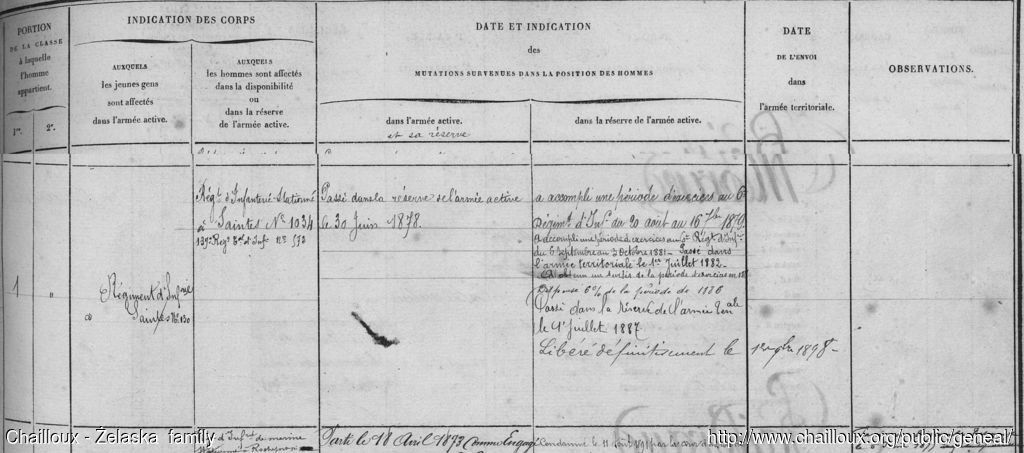 PORTION
DE LA CLASSE
à laquelle
l'homme
appartient.
1re.
2e.
INDICATION DES CORPS
AUXQUELS
les jeunes gens
sont affectés
dans l'armée active.
AUXQUELS
les hommes sont affectés
dans la disponibilité
ou
dans la réserve
de l'armée active.
DATE ET INDICATION
des
MUTATIONS SURVENUES DANS LA POSITION DES HOMMES
dans l'armée active.
et sa réserve
dans la réserve de l'armée active.
DATE
DE L'ENVOI
dans
l'armée territoriale.
OBSERVATIONS.
1
"
Régiment d'Infrie
a Saintes No 130
Régt. d'Infanterie Stationné
à Saintes No 1034
137e Regt Tal d'Infie No 572
Passé dans la réserve de l'armée active
le 30 Juin 1878.
a accompli une période d'exercices au 6e
Régimt. d'Infie du 20 août au 16 7bre 1879.
A accompli une période d'exercices au 6e Régt d'Infie
du 6 Septembre au 3 Octobre 1881 - Passé dans
l'armée territoriale le 1er Juillet 1882 -
A obtenu un sursis de la période d'exercices en 18
Dispensé 6% de la période de 1886
Passé dans la Réserve de l'armée Tenale
le 1er Juillet 1887
Libéré définitivement le 1er 9bre 1898 -
d'Infie de marine
Parti le 18 Avril 1873 Comme Engagé
Condamné le 11 août
Chailloux - Želaska family
http://www.chailloux.org/public/geneal/